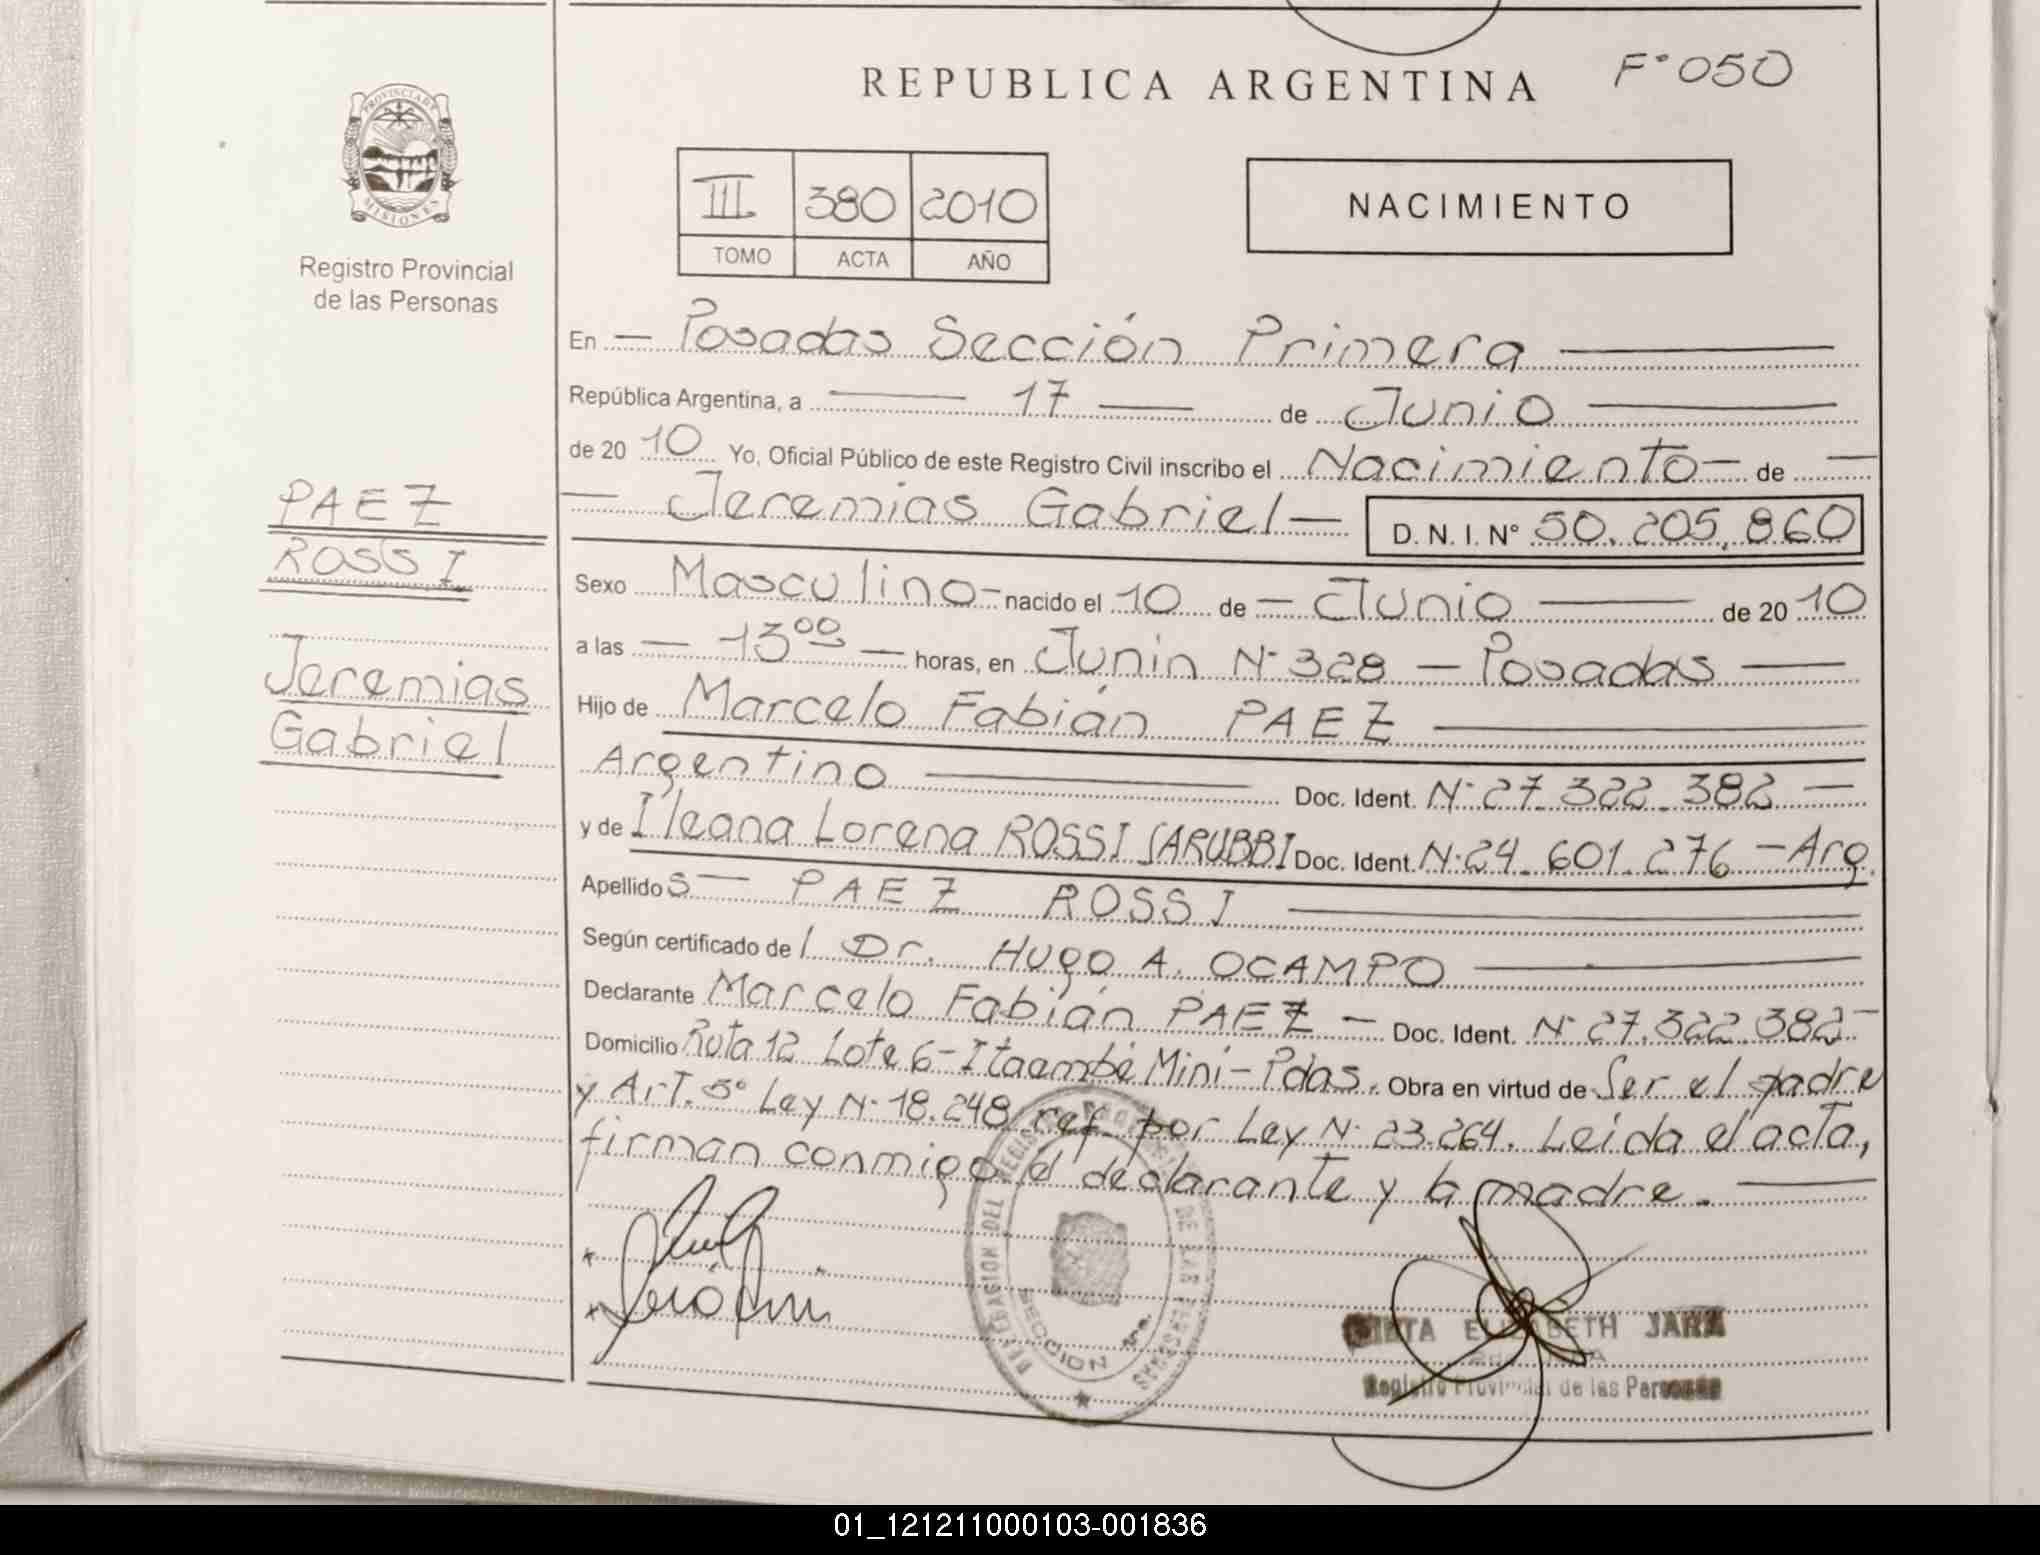 REPUBLICA ARGENTINA
F° 050
PROVINCIA DE MISIONES
Registro Provincial
de las Personas
III 380 2010
TOMO ACTA AÑO
NACIMIENTO
En — Posadas Sección Primera —
República Argentina, a — 17 — de Junio —
de 20 10 Yo, Oficial Público de este Registro Civil inscribo el Nacimiento — de —
— Jeremias Gabriel — D. N. I. N° 50.205.860
PAEZ
ROSSI
Jeremias
Gabriel
Sexo Masculino — nacido el 10 de — Junio — de 20 10
a las — 13 00 — horas, en Junin N° 328 — Posadas —
Hijo de Marcelo Fabián PAEZ —
Argentino — Doc. Ident. N° 27.322.382 —
y de Ileana Lorena ROSSI SARUBBI Doc. Ident. N° 24.601.276 — Arg.
Apellido s — PAEZ ROSSI —
Según certificado de l Dr. Hugo A. OCAMPO —
Declarante Marcelo Fabián PAEZ — Doc. Ident. N° 27.322.382 —
Domicilio Ruta 12 Lote 6 - Itaembé Mini - Pdas. Obra en virtud de Ser el padre
y Art. 5° Ley N° 18.248 ref. por Ley N° 23.264. Leida el acta,
firman conmigo el declarante y la madre. —
DELEGACION DEL REGISTRO PROVINCIAL DE LAS PERSONAS
SECCION 1ra.
ELIZABETH JARA
Registro Provincial de las Personas
01_121211000103-001836